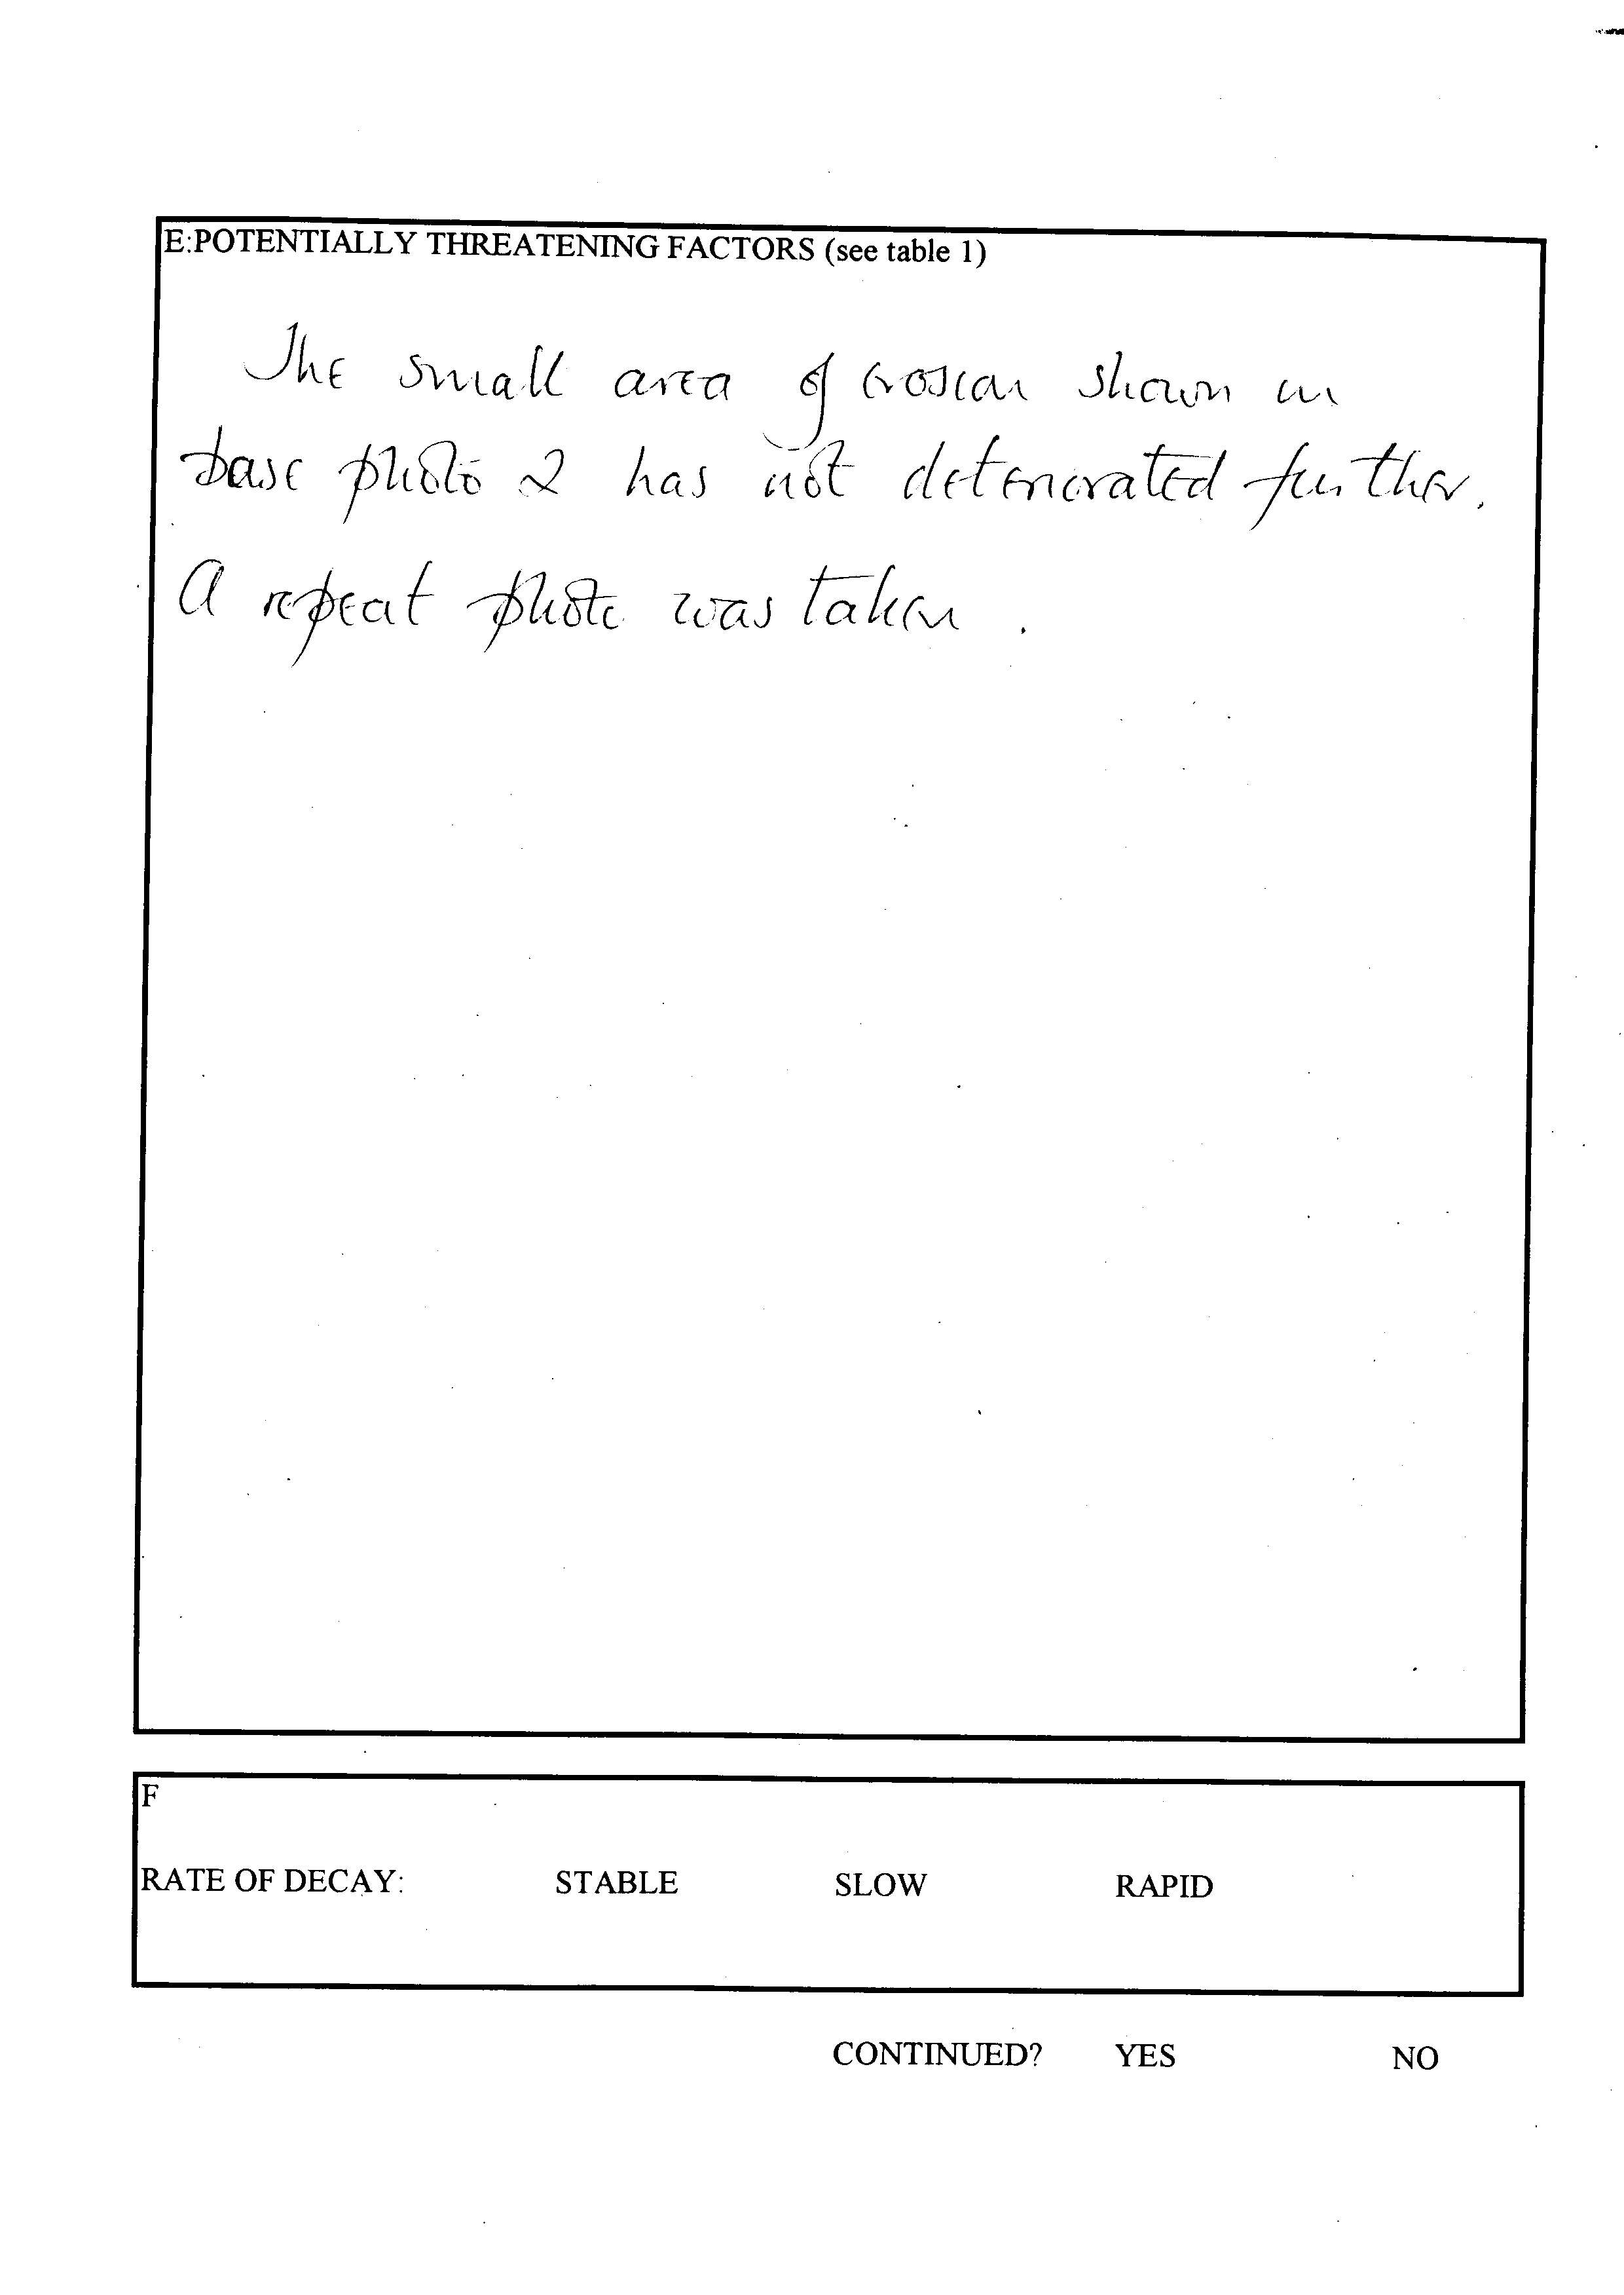 E:POTENTIALLY THREATENING FACTORS (see table 1)
The small area of erosion shown in
base photo 2 has not deteriorated further.
A repeat photo was taken.
F
RATE OF DECAY: STABLE SLOW RAPID
CONTINUED? YES NO